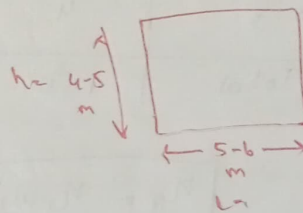 h= 4-5
m
5-6
m
L=